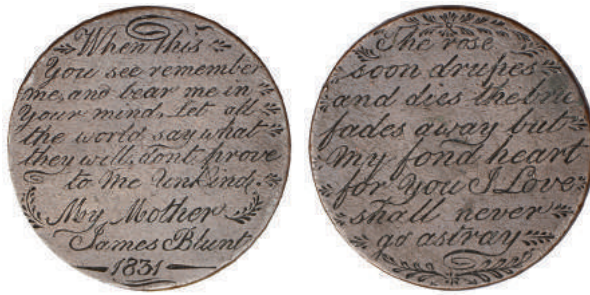 When this
You see remember
me, and bear me in
Your mind. Let all
the world say what
they will, dont prove
to me UnKind.
My Mother
James Blunt
1831
The rose
soon drupes
and dies the bru
fades away but
my fond heart
for You I Love
shall never
go astray